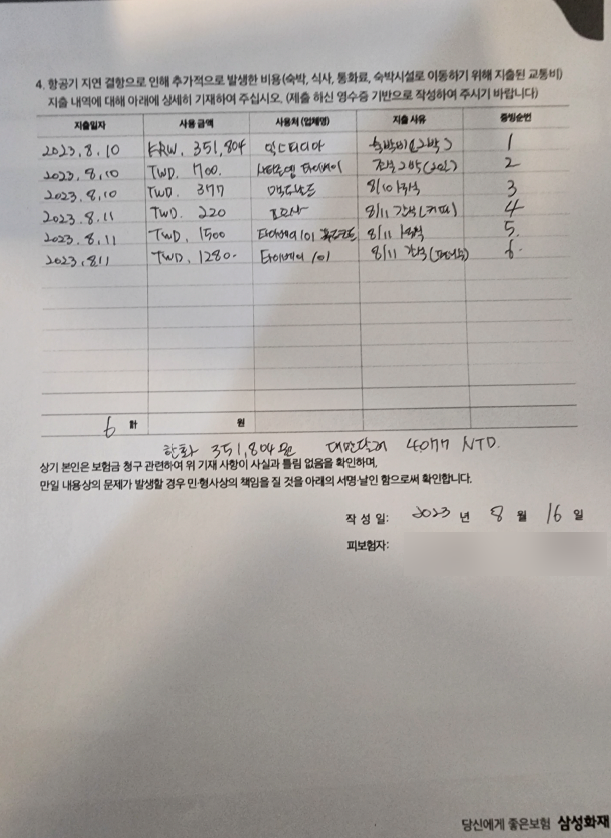 4. 항공기 지연 결항으로 인해 추가적으로 발생한 비용(숙박, 식사, 통화료, 숙박시설로 이동하기 위해 지출된 교통비)
지출 내역에 대해 아래에 상세히 기재하여 주십시오. (제출 하신 영수증 기반으로 작성하여 주시기 바랍니다)
지출일자 사용 금액 사용처 (업체명) 지출 사유 증빙순번
2023.8.10 KRW. 351,804 익스피디아 숙박비(2박) 1
2023.8.10 TWD. 700. 타이베이 조식 2박(2인) 2
2023.8.10 TWD. 377 맥도날드 8/10 3
2023.8.11 TWD. 220 8/11 간식(커피) 4
2023.8.11 TWD. 1500 타이베이101 8/11 5.
2023.8.11 TWD. 1280- 타이베이 101 8/11 간식 6.
6 계 원
한화 351,804원 대만달러 4077 NTD.
상기 본인은 보험금 청구 관련하여 위 기재 사항이 사실과 틀림 없음을 확인하며,
만일 내용상의 문제가 발생할 경우 민·형사상의 책임을 질 것을 아래의 서명·날인 함으로써 확인합니다.
작 성 일: 2023 년 8 월 16 일
피보험자:
당신에게 좋은보험 삼성화재